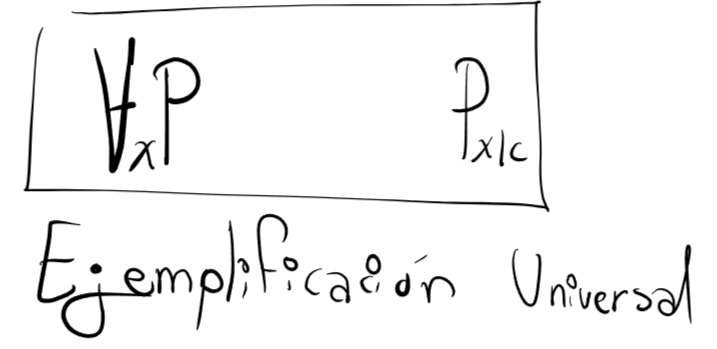 ∀xP Px|c
Ejemplificación Universal